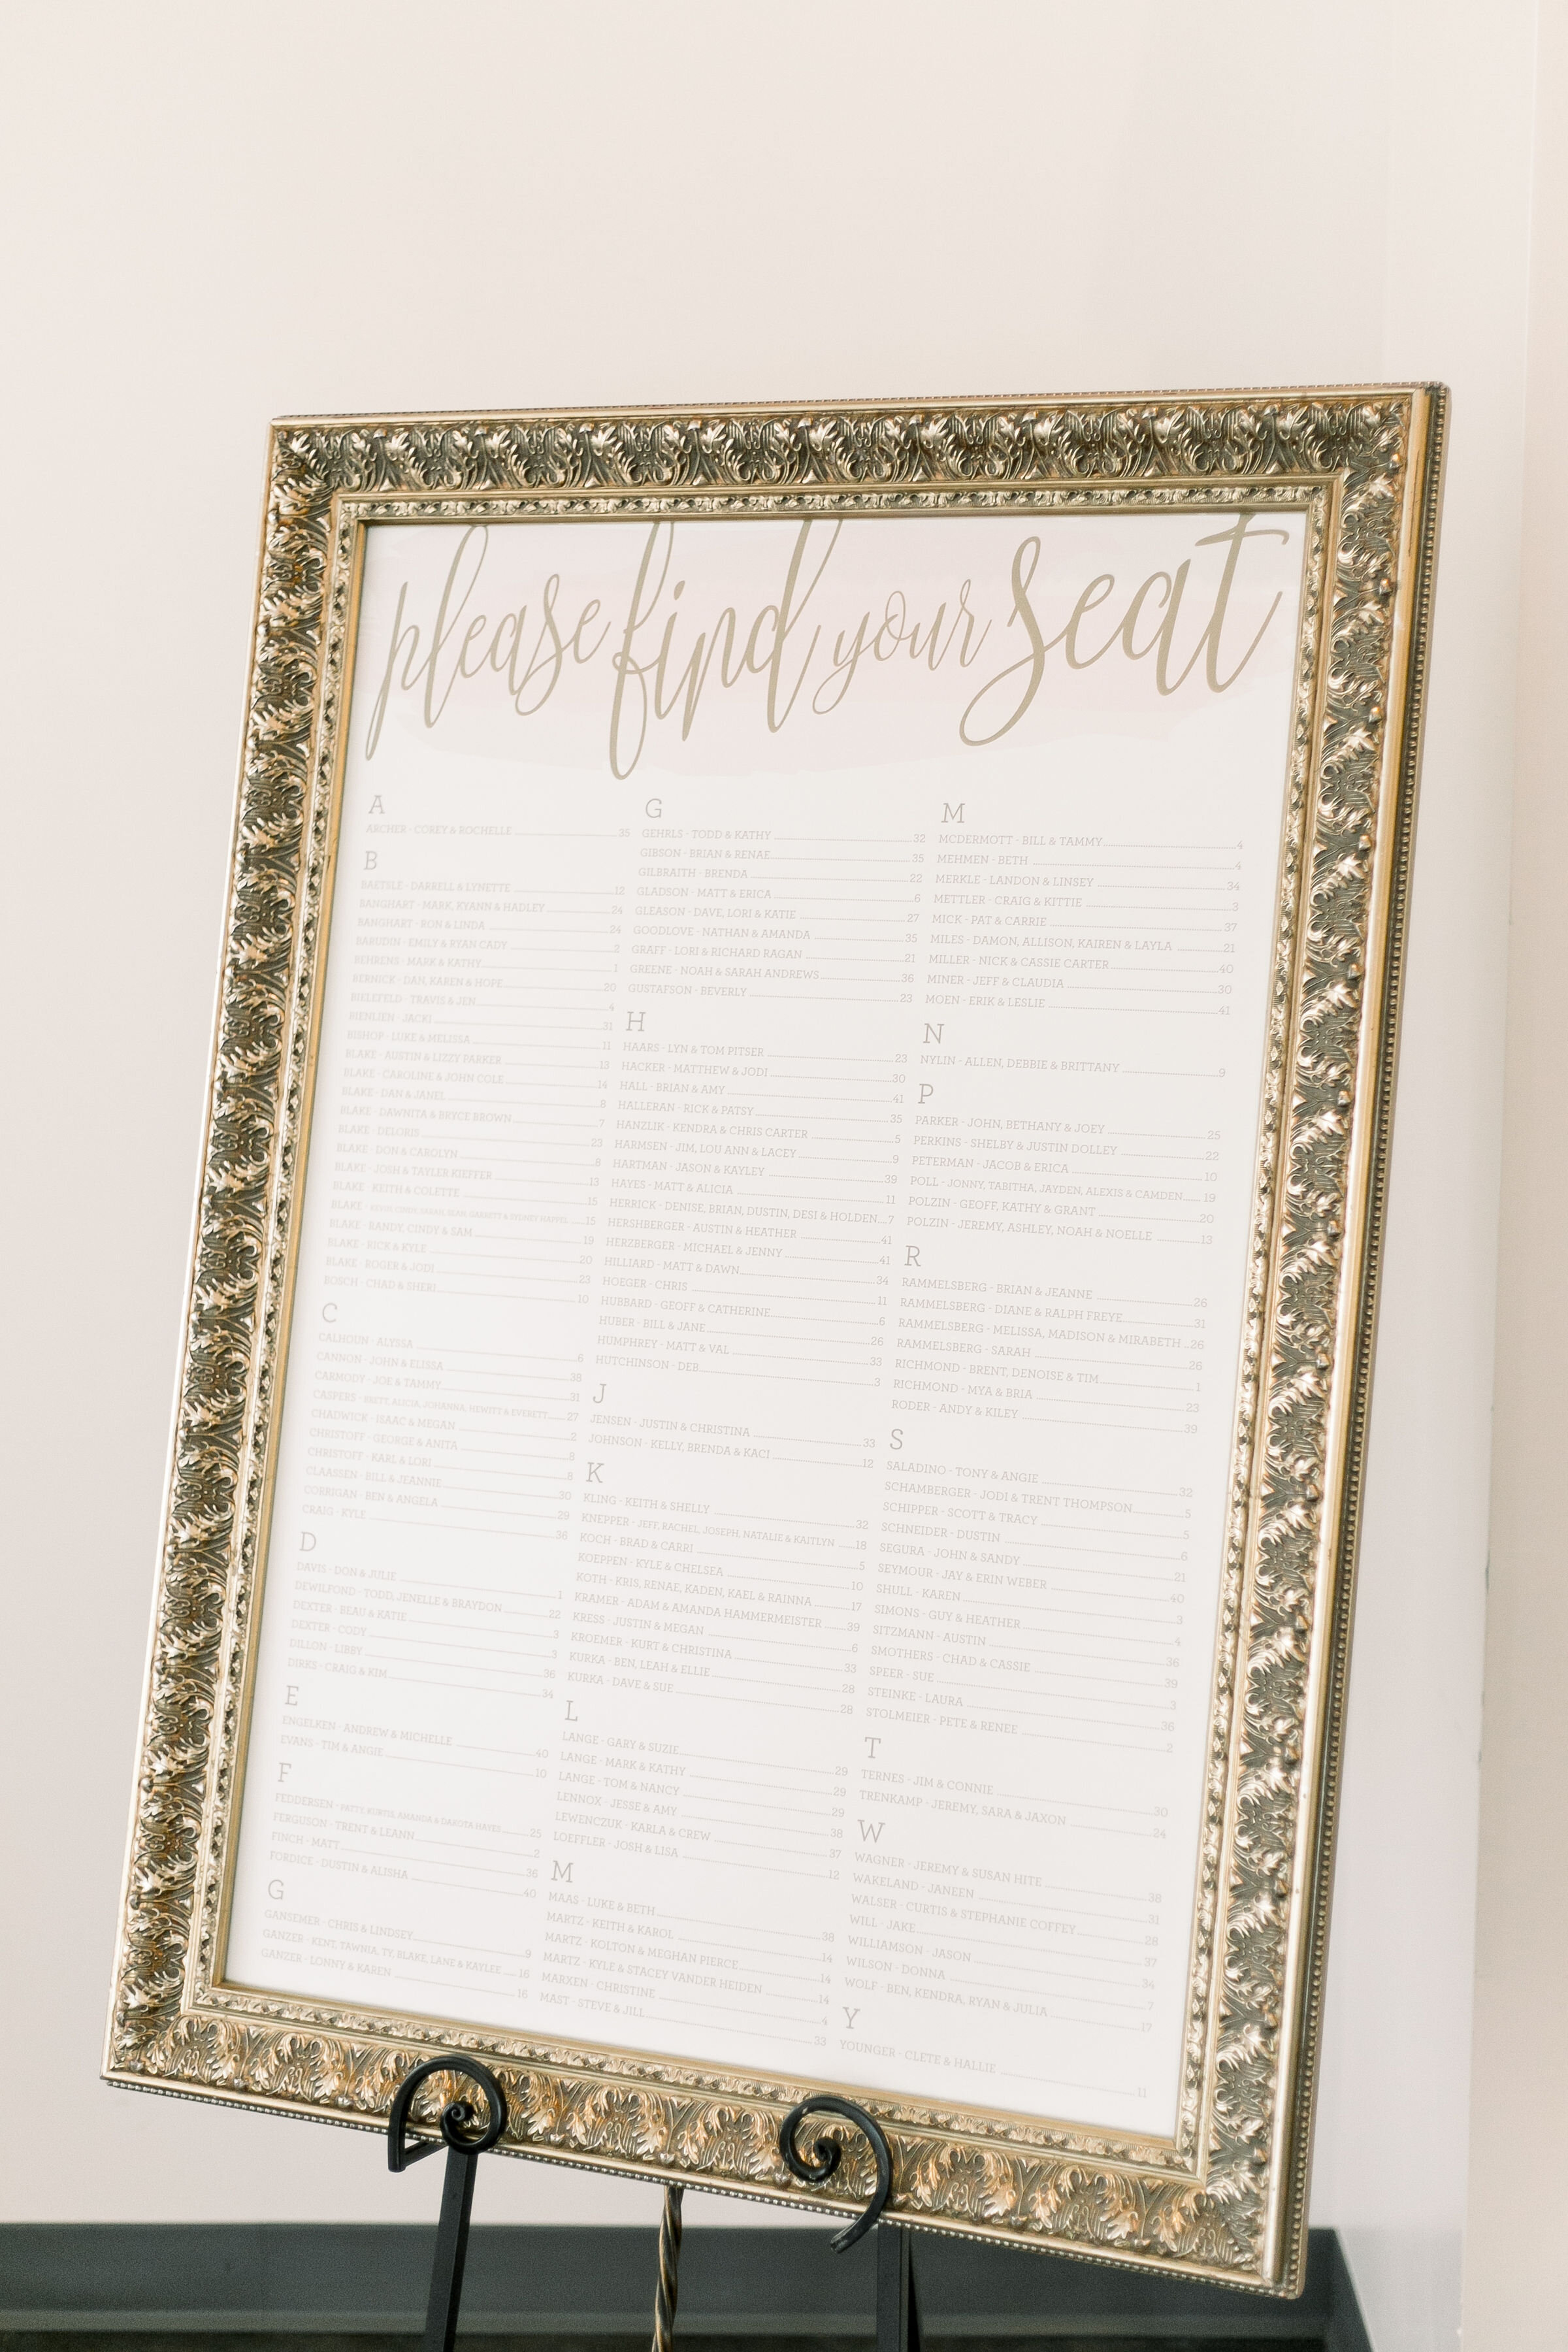 please find your seat
A
ARCHER - COREY & ROCHELLE 35
B
BAETSLE - DARRELL & LYNETTE 12
BANGHART - MARK, KYANN & HADLEY 24
BANGHART - RON & LINDA 24
BARUDIN - EMILY & RYAN CADY 2
BEHRENS - MARK & KATHY 1
BERNICK - DAN, KAREN & HOPE 20
BIELEFELD - TRAVIS & JEN 4
BIENLIEN - JACKI 31
BISHOP - LUKE & MELISSA 11
BLAKE - AUSTIN & LIZZY PARKER 13
BLAKE - CAROLINE & JOHN COLE 14
BLAKE - DAN & JANEL 8
BLAKE - DAWNITA & BRYCE BROWN 7
BLAKE - DELORIS 23
BLAKE - DON & CAROLYN 8
BLAKE - JOSH & TAYLER KIEFFER 13
BLAKE - KEITH & COLETTE 15
BLAKE - SARAH, SEAN, GARRETT & SYDNEY 15
BLAKE - RANDY, CINDY & SAM 19
BLAKE - RICK & KYLE 20
BLAKE - ROGER & JODI 23
BOSCH - CHAD & SHERI 10
C
CALHOUN - ALYSSA 6
CANNON - JOHN & ELISSA 38
CARMODY - JOE & TAMMY 31
CASPERS - BRETT, ALICIA, JOHANNA, HEWITT & EVERETT 27
CHADWICK - ISAAC & MEGAN 2
CHRISTOFF - GEORGE & ANITA 8
CHRISTOFF - KARL & LORI 8
CLAASSEN - BILL & JEANNIE 30
CORRIGAN - BEN & ANGELA 29
CRAIG - KYLE 36
D
DAVIS - DON & JULIE 1
DEWILFOND - TODD, JENELLE & BRAYDON 22
DEXTER - BEAU & KATIE 3
DEXTER - CODY 3
DILLON - LIBBY 36
DIRKS - CRAIG & KIM 34
E
ENGELKEN - ANDREW & MICHELLE 40
EVANS - TIM & ANGIE 10
F
FEDDERSEN - PATTY, KURTIS, AMANDA & DAKOTA HAYES 25
FERGUSON - TRENT & LEANN 2
FINCH - MATT 36
FORDICE - DUSTIN & ALISHA 40
G
GANSEMER - CHRIS & LINDSEY 9
GANZER - KENT, TAWNIA, TY, BLAKE, LANE & KAYLEE 16
GANZER - LONNY & KAREN 16
G
GEHRLS - TODD & KATHY 32
GIBSON - BRIAN & RENAE 35
GILBRAITH - BRENDA 22
GLADSON - MATT & ERICA 6
GLEASON - DAVE, LORI & KATIE 27
GOODLOVE - NATHAN & AMANDA 35
GRAFF - LORI & RICHARD RAGAN 21
GREENE - NOAH & SARAH ANDREWS 36
GUSTAFSON - BEVERLY 23
H
HAARS - LYN & TOM PITSER 23
HACKER - MATTHEW & JODI 30
HALL - BRIAN & AMY 41
HALLERAN - RICK & PATSY 35
HANZLIK - KENDRA & CHRIS CARTER 5
HARMSEN - JIM, LOU ANN & LACEY 9
HARTMAN - JASON & KAYLEY 39
HAYES - MATT & ALICIA 11
HERRICK - DENISE, BRIAN, DUSTIN, DESI & HOLDEN 7
HERSHBERGER - AUSTIN & HEATHER 41
HERZBERGER - MICHAEL & JENNY 41
HILLIARD - MATT & DAWN 34
HOEGER - CHRIS 11
HUBBARD - GEOFF & CATHERINE 6
HUBER - BILL & JANE 26
HUMPHREY - MATT & VAL 33
HUTCHINSON - DEB 3
J
JENSEN - JUSTIN & CHRISTINA 33
JOHNSON - KELLY, BRENDA & KACI 12
K
KLING - KEITH & SHELLY 32
KNEPPER - JEFF, RACHEL, JOSEPH, NATALIE & KAITLYN 18
KOCH - BRAD & CARRI 5
KOEPPEN - KYLE & CHELSEA 10
KOTH - KRIS, RENAE, KADEN, KAEL & RAINNA 17
KRAMER - ADAM & AMANDA HAMMERMEISTER 39
KRESS - JUSTIN & MEGAN 6
KROEMER - KURT & CHRISTINA 33
KURKA - BEN, LEAH & ELLIE 28
KURKA - DAVE & SUE 28
L
LANGE - GARY & SUZIE 29
LANGE - MARK & KATHY 29
LANGE - TOM & NANCY 29
LENNOX - JESSE & AMY 38
LEWENCZUK - KARLA & CREW 37
LOEFFLER - JOSH & LISA 12
M
MAAS - LUKE & BETH 38
MARTZ - KEITH & KAROL 14
MARTZ - KOLTON & MEGHAN PIERCE 14
MARTZ - KYLE & STACEY VANDER HEIDEN 14
MARXEN - CHRISTINE 4
MAST - STEVE & JILL 33
M
MCDERMOTT - BILL & TAMMY 4
MEHMEN - BETH 4
MERKLE - LANDON & LINSEY 34
METTLER - CRAIG & KITTIE 3
MICK - PAT & CARRIE 37
MILES - DAMON, ALLISON, KAIREN & LAYLA 21
MILLER - NICK & CASSIE CARTER 40
MINER - JEFF & CLAUDIA 30
MOEN - ERIK & LESLIE 41
N
NYLIN - ALLEN, DEBBIE & BRITTANY 9
P
PARKER - JOHN, BETHANY & JOEY 25
PERKINS - SHELBY & JUSTIN DOLLEY 22
PETERMAN - JACOB & ERICA 10
POLL - JONNY, TABITHA, JAYDEN, ALEXIS & CAMDEN 19
POLZIN - GEOFF, KATHY & GRANT 20
POLZIN - JEREMY, ASHLEY, NOAH & NOELLE 13
R
RAMMELSBERG - BRIAN & JEANNE 26
RAMMELSBERG - DIANE & RALPH FREYE 31
RAMMELSBERG - MELISSA, MADISON & MIRABETH 26
RAMMELSBERG - SARAH 26
RICHMOND - BRENT, DENOISE & TIM 1
RICHMOND - MYA & BRIA 23
RODER - ANDY & KILEY 39
S
SALADINO - TONY & ANGIE 32
SCHAMBERGER - JODI & TRENT THOMPSON 5
SCHIPPER - SCOTT & TRACY 5
SCHNEIDER - DUSTIN 6
SEGURA - JOHN & SANDY 21
SEYMOUR - JAY & ERIN WEBER 40
SHULL - KAREN 3
SIMONS - GUY & HEATHER 4
SITZMANN - AUSTIN 36
SMOTHERS - CHAD & CASSIE 39
SPEER - SUE 3
STEINKE - LAURA 36
STOLMEIER - PETE & RENEE 2
T
TERNES - JIM & CONNIE 30
TRENKAMP - JEREMY, SARA & JAXON 24
W
WAGNER - JEREMY & SUSAN HITE 38
WAKELAND - JANEEN 31
WALSER - CURTIS & STEPHANIE COFFEY 28
WILL - JAKE 37
WILLIAMSON - JASON 34
WILSON - DONNA 7
WOLF - BEN, KENDRA, RYAN & JULIA 17
Y
YOUNGER - CLETE & HALLIE 11